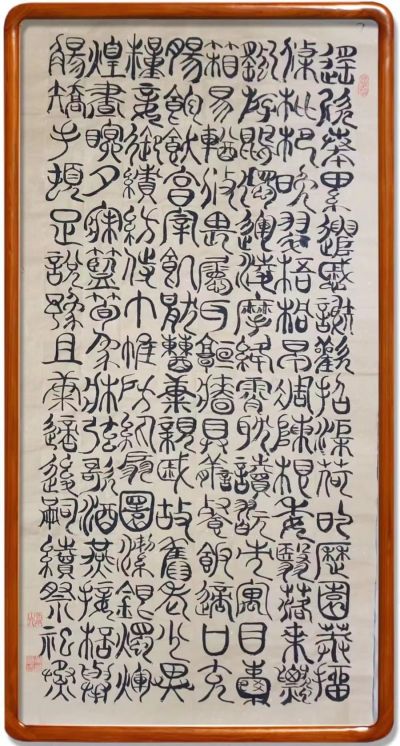 遙欣奏累遣慼謝歡招渠荷的歷園莽抽
條枇杷晚翠梧桐早凋陳根委翳落葉飄
颻游鵾獨運凌摩絳霄耽讀翫市寓目囊
箱易輶攸畏屬耳垣牆具膳餐飯適口充
腸飽飫烹宰飢厭糟糠親戚故舊老少異
糧妾御績紡侍巾帷房紈扇圓潔銀燭煒
煌晝眠夕寐藍筍象床弦歌酒宴接杯舉
觴矯手頓足悅豫且康嫡後嗣續祭祀蒸